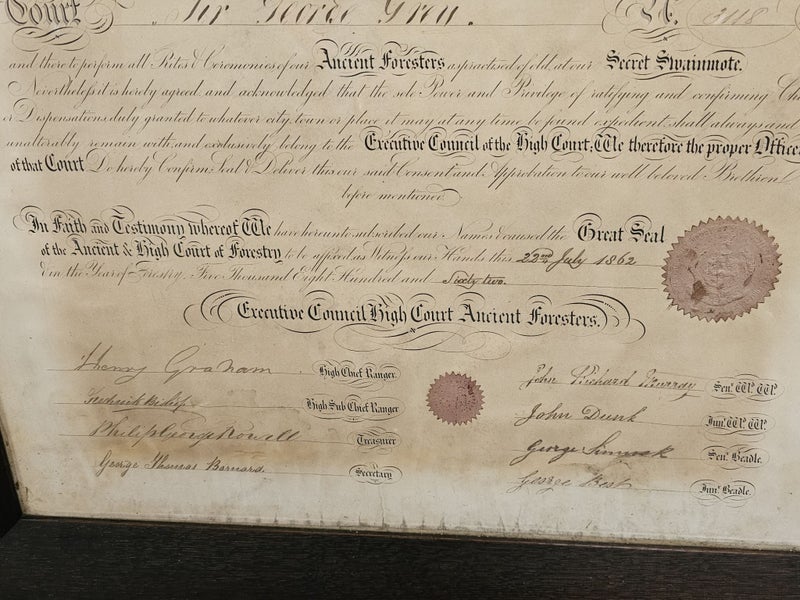 Court Sir George Grey. No. 3118
and there to perform all Rites & Ceremonies of our Ancient Foresters as practised of old, at our Secret Swainmote.
Nevertheless it is hereby agreed and acknowledged that the sole Power and Privilege of ratifying and confirming
or Dispensations duly granted to whatever city, town or place it may at any time be found expedient, shall always and
unalterably remain with, and exclusively belong to the Executive Council of the High Court; We therefore the proper Office
of that Court Do hereby Confirm, Seal & Deliver this our said Consent and Approbation to our well beloved Brethren
before mentioned
In Faith and Testimony whereof We have hereunto subscribed our Names & caused the Great Seal
of the Ancient & High Court of Forestry to be affixed as Witness our Hands this 22nd July 1862
& in the Year of Forestry, Five Thousand Eight Hundred and Sixty two.
Executive Council High Court Ancient Foresters.
Henry Graham High Chief Ranger.
Frederick Bishop High Sub Chief Ranger
Philip George Rowell Treasurer
George Thomas Barnard Secretary
John Richard Senr. Wd. Wd.
John Dunk Junr. Wd. Wd.
George Senr. Beadle.
George Best Junr. Beadle.